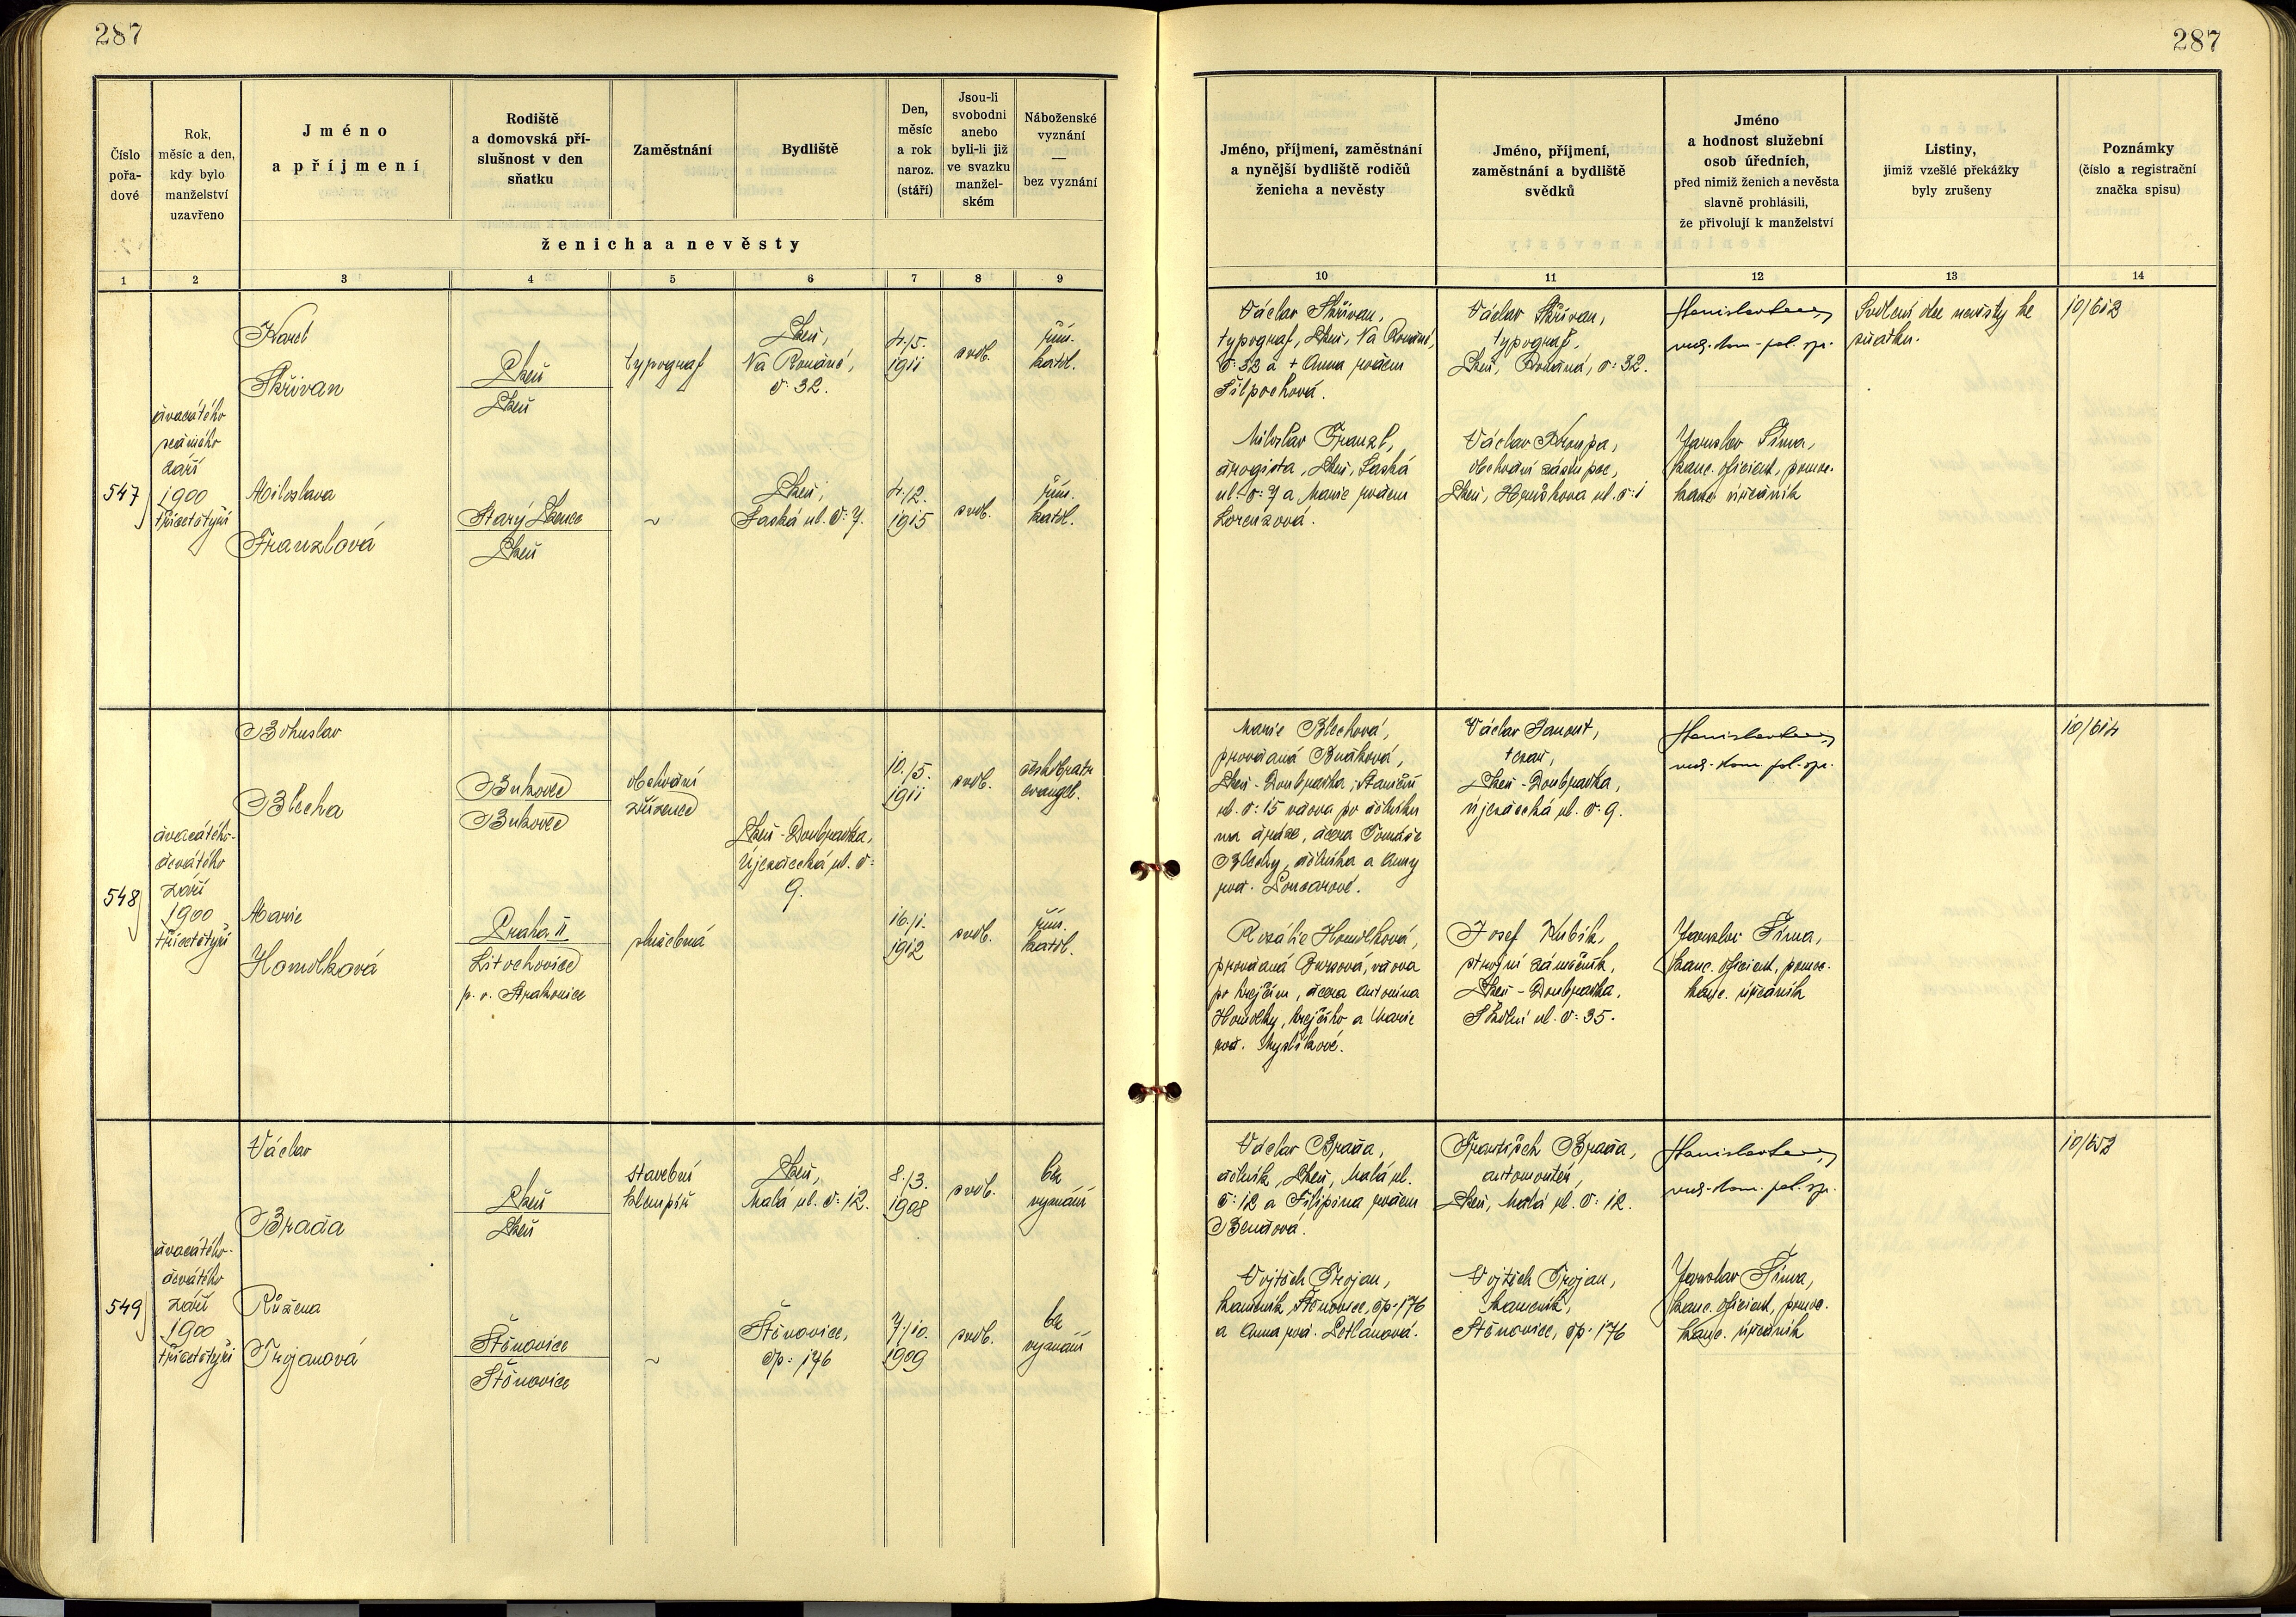 287
287
Číslo
pořa-
dové
Rok,
měsíc a den,
kdy bylo
manželství
uzavřeno
Jméno
a příjmení
Rodiště
a domovská pří-
slušnost v den
sňatku
Zaměstnání
Bydliště
Den,
měsíc
a rok
naroz.
(stáří)
Jsou-li
svobodni
anebo
byli-li již
ve svazku
manžel-
ském
Náboženské
vyznání
—
bez vyznání
ženicha a nevěsty
Jméno, příjmení, zaměstnání
a nynější bydliště rodičů
ženicha a nevěsty
Jméno, příjmení,
zaměstnání a bydliště
svědků
Jméno
a hodnost služební
osob úředních,
před nimiž ženich a nevěsta
slavně prohlásili,
že přivolují k manželství
Listiny,
jimiž vzešlé překážky
byly zrušeny
Poznámky
(číslo a registrační
značka spisu)
1 2 3 4 5 6 7 8 9 10 11 12 13 14
547
dvacátého
sedmého
září
1900
třicetčtyři
Karel
Skřivan
Plzeň
Plzeň
typograf
Plzeň,
Na Roudné,
č: 32.
4./5.
1911
svob.
řím.
katol.
Miloslava
Franzlová
Starý Plzenec
Plzeň
~
Plzeň,
Saská ul. č: 7.
4./2.
1915
svob.
řím.
katol.
Václav Skřivan,
typograf, Plzeň, Na Roudné,
č: 32 a + Anna rozem
Miloslav Franzl,
drogista, Plzeň, Saská
ul. č: 7 a Marie rozem
Lorenzová.
Václav Skřivan,
typograf,
Plzeň, Roudná, č: 32.
Václav Kroupa,
obchodní zástupce,
Plzeň, ul. č: 1
vrch. kom. pol. spr.
Jaroslav Šíma,
kanc. oficiant, pomoc.
kanc. úředník
Svolení otce nevěsty ke
sňatku.
10/612
548
dvacátého-
devátého
září
1900
třicetčtyři
Bohuslav
Blecha
Bukovec
Bukovec
obchodní
zřízenec
Plzeň-Doubravka,
Újezdecká ul. č:
9.
10./5.
1911
svob.
českobratr.
evangel.
Marie
Homolková
Praha II
Litochovice
p. o. Strakonice
služebná
16./1.
1912
svob.
řím.
katol.
Marie Blechová,
provdaná
Plzeň-Doubravka, Staniční
ul. č: 15 vdova po dělníku
na dráze, dcera Tomáše
Blechy, dělníka a Anny
roz.
Rozálie Homolková,
provdaná vdova
po krejčím, dcera Antonína
Homolky, krejčího a Marie
roz. Myslíkové.
Václav Janout,
tesař,
Plzeň-Doubravka,
Újezdecká ul. č: 9.
Josef Kubík,
strojní zámečník,
Plzeň-Doubravka,
Školní ul. č: 35.
vrch. kom. pol. spr.
Jaroslav Šíma,
kanc. oficiant, pomoc.
kanc. úředník
10/614
549
dvacátého-
devátého
září
1900
třicetčtyři
Václav
Brada
Plzeň
Plzeň
stavební
klempíř
Plzeň,
Malá ul. č: 12.
8./3.
1908
svob.
bez
vyznání
Růžena
Trojanová
Štěnovice
Štěnovice
~
Štěnovice,
čp: 176
7./10.
1909
svob.
bez
vyznání
Václav Brada,
dělník, Plzeň, Malá ul.
č: 12 a Filipina rozem
Vojtěch Trojan,
kameník, Štěnovice, čp. 176
a Anna roz.
František Brada,
automontér,
Plzeň, Malá ul. č: 12.
Vojtěch Trojan,
kameník,
Štěnovice, čp. 176
vrch. kom. pol. spr.
Jaroslav Šíma,
kanc. oficiant, pomoc.
kanc. úředník